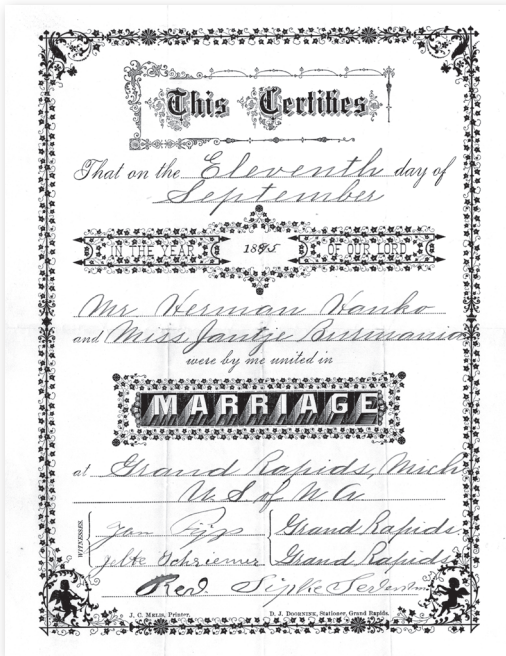 This Certifies
That on the Eleventh day of
September
IN THE YEAR 1895 OF OUR LORD
Mr. Herman Hanko
and Miss Jantje Burmania
were by me united in
MARRIAGE
at Grand Rapids, Mich
U S of N A
WITNESSES.
Jan Grand Rapids.
Jelte Schriemer Grand Rapids
Rev. Sipke
J. C. MELIS, Printer. D. J. DOORNINK, Stationer, Grand Rapids.